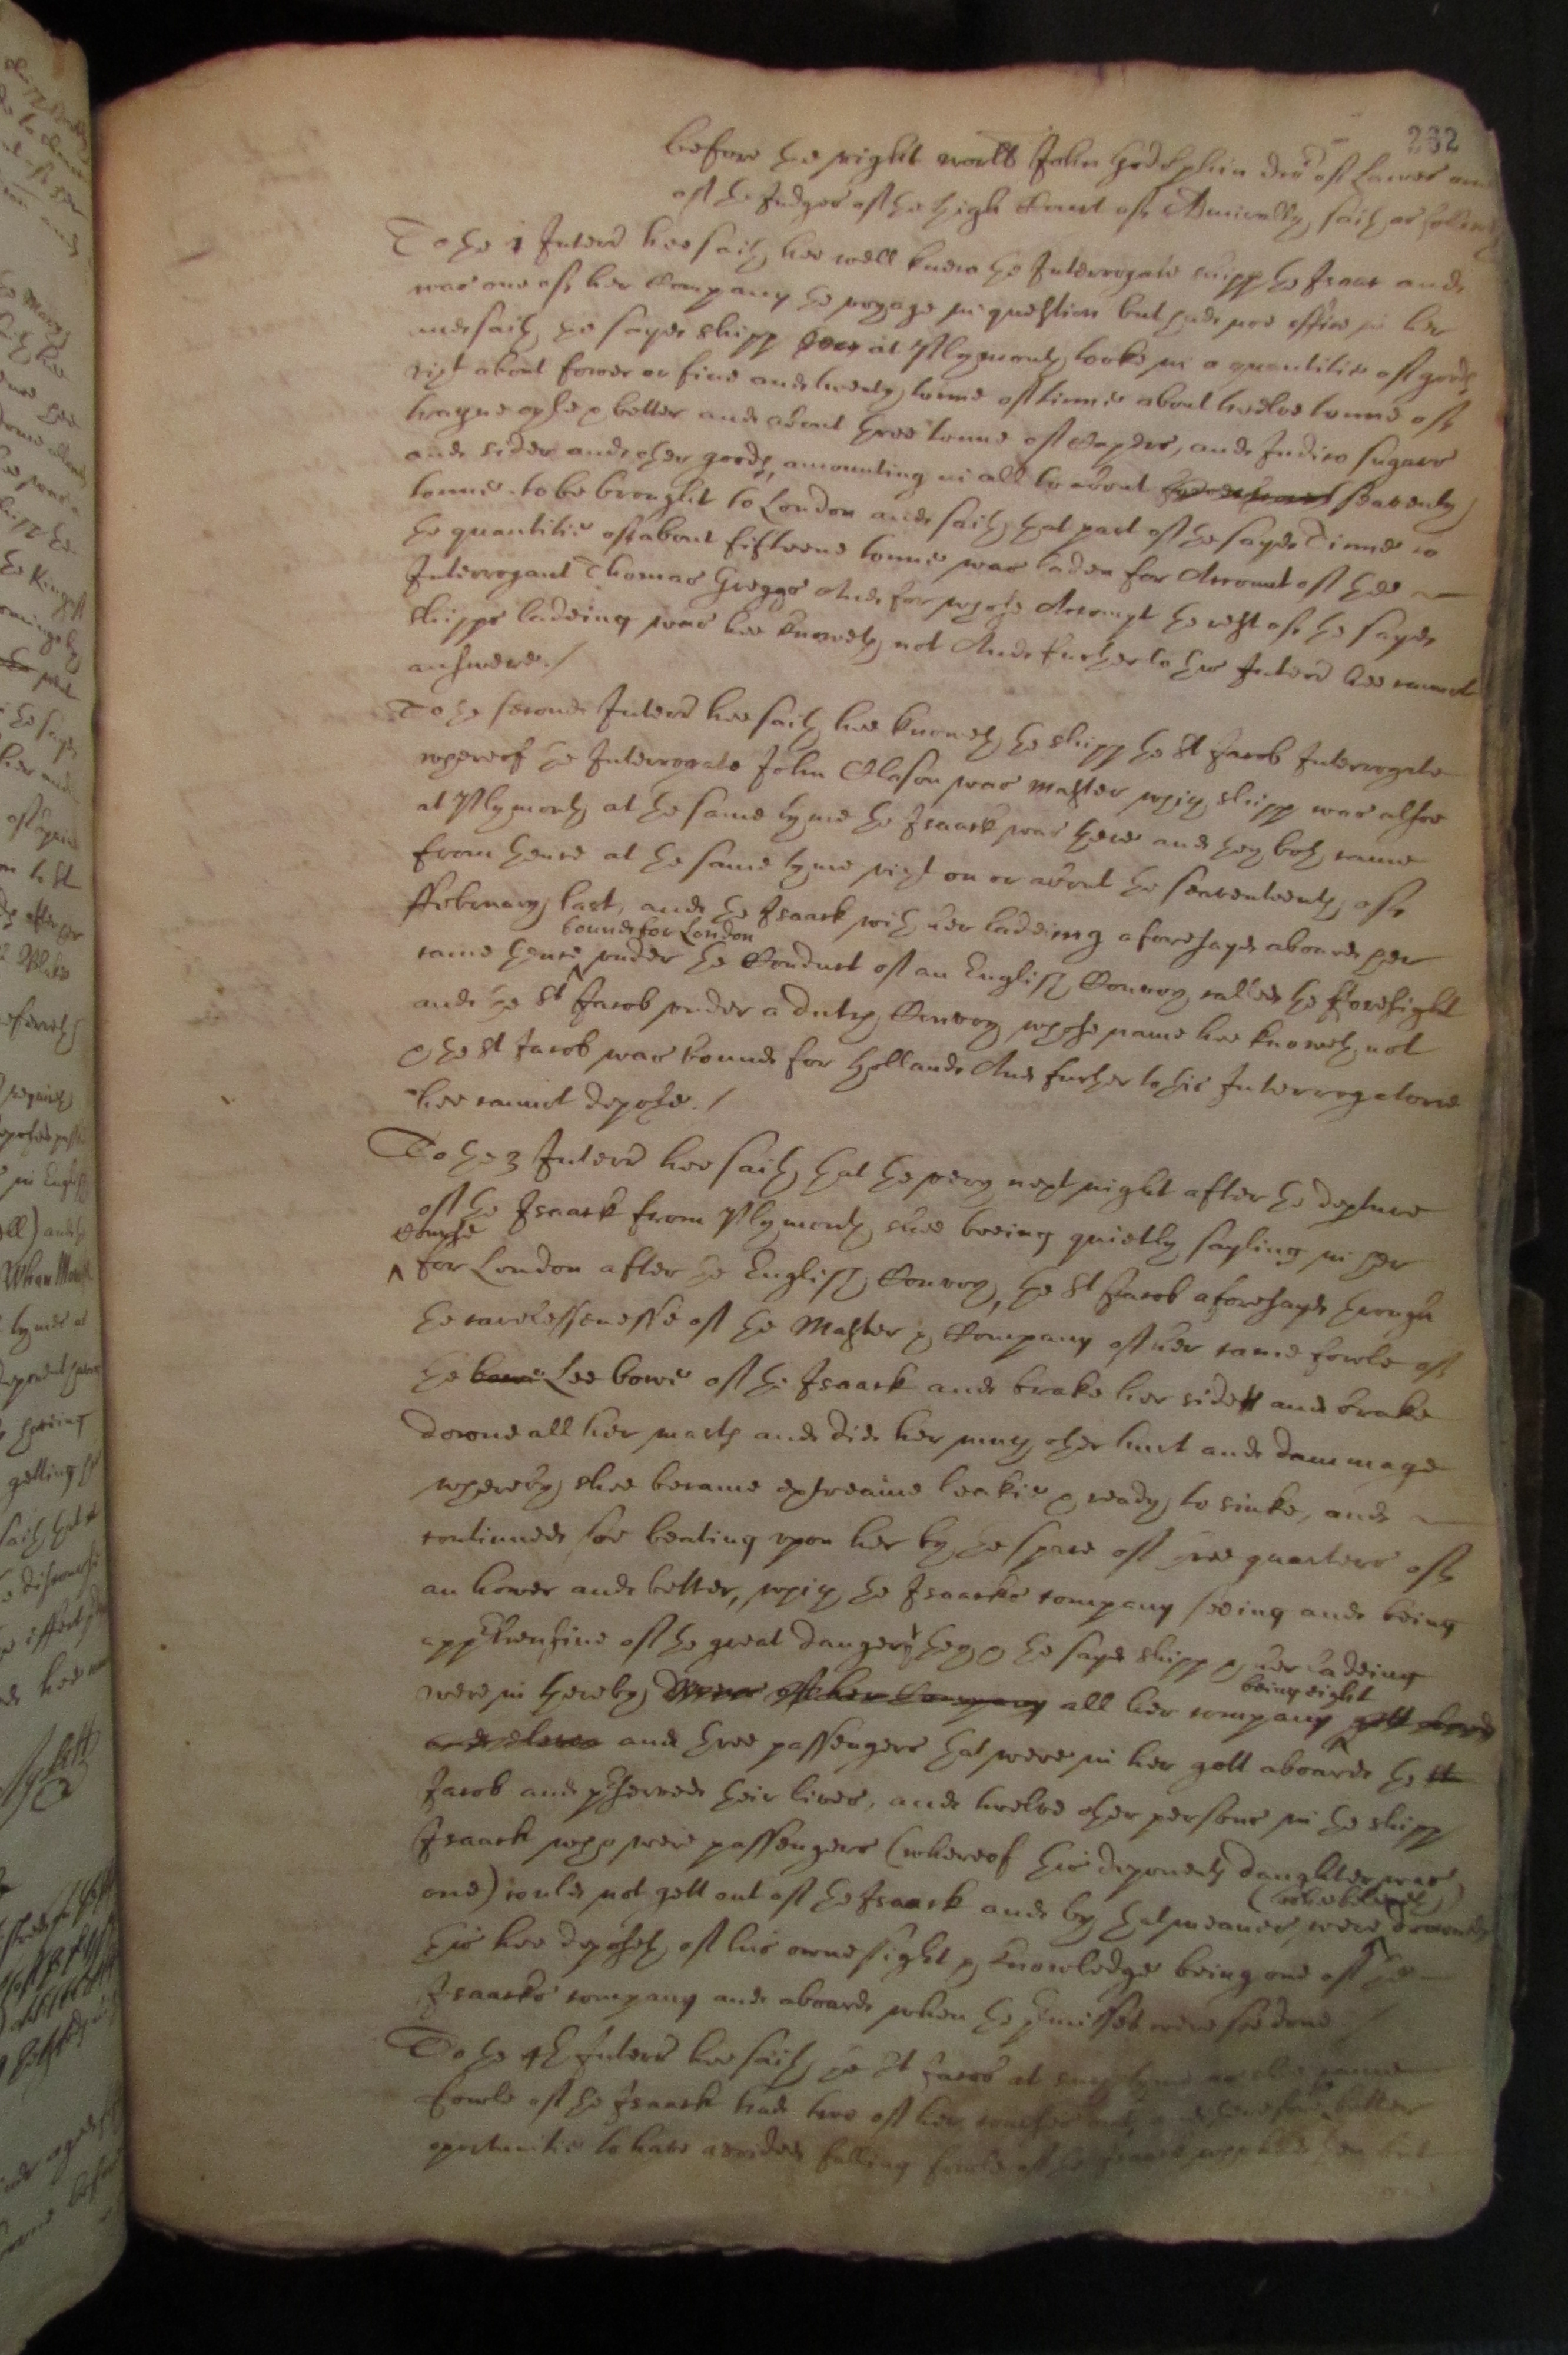 232
before the right worll John Godolphin dor of Lawes one
of the Judges of the high Court of Admiralty saith as followeth
To the 1 Interr hee saith hee well knew the Interrogate shipp the Isaac and
was one of her Company the voyage in question but had noe office in her
and saith the sayd shipp at Plymouth tooke in a quantitie of goods
vizt about fower or five and twenty tonne of tinne about twelve tonne of
trayne oyle & better and about three tonne of Capers, and Indico sugars
and sider and other goods, amounting in all to about seaventy
tonne to be brought to London and saith that part of the sayd Tinne to
the quantitie of about fifteene tonne was laden for Account of the
Interrogant Thomas Greggs And for whose Accompt the rest of the sayd
shipps ladeing was hee knoweth not And further to this Interr hee cannot
answere./
To the second Interr hee saith hee knoweth the shipp the St Jacob Interrogate
whereof the Interrogate John Clason was Master which shipp was alsoe
at Plymouth at the same tyme the Isaack was there and they both came
from thence at the same tyme vizt on or about the seaventeenth of
ffebruary last, and the Isaack with her ladeing aforesayd aboard her
bound for London
came thence under the Conduct of an English Convoy called the fforesight
and the St Jacob under a dutch Convoy whose name hee knoweth not
& the St Jacob was bound for Holland And further to this Interrogatorie
hee cannot depose./
To the 3 Interr hee saith that the very next night after the depture
of the Isaack from Plymouth shee beeing quietly sayling in her
course
for London after the English Convoy, the St Jacob aforesayd through
the carelessenesse of the Master & Company of her came fowle of
the bowe Lee bowe of the Isaack and brake her side and brake
downe all her masts and did her much other hurt and dammage
whereby shee became extreame leakie & ready to sinke, and
continued soe beating upon her by the space of three quarters of
an hower and better, which the Isaacks company seeing and being
apprehensive of the great danger they & the sayd shipp & her ladeing
being eight
were in thereby of her Company all her company gott
and three passengers that were in her gott aboard the St
Jacob and pserved their lives, and twelve other persons in the shipp
Isaack who were passengers (whereof this deponents daughter was
one) could not gett out of the Isaack and by that meanes were drowned
this hee deposeth of his owne sight & knowledge being one of the
Isaacks company and aboard when the pmisses were soe done /
To the 4th Interr hee saith the St Jacob at such tyme as shee came
fowle of the Isaack had two of her courses and therefore better
oportunitie to have avoided falling fowle of the Isaack